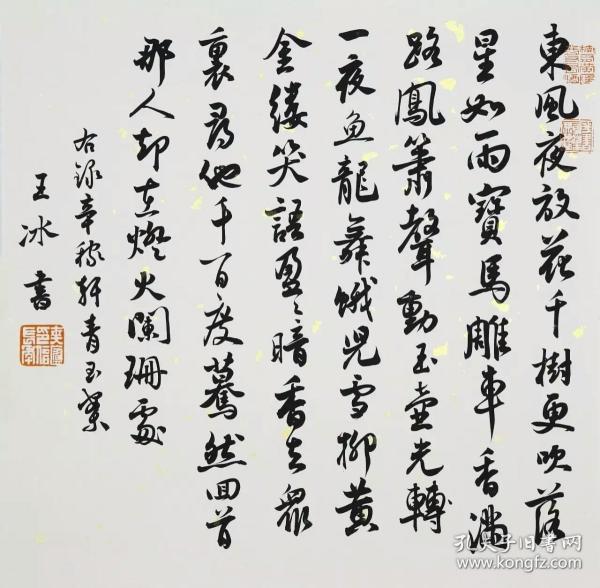 東風夜放花千樹更吹落
星如雨寶馬雕車香滿
路鳳簫聲動玉壺光轉
一夜魚龍舞蛾兒雪柳黄
金縷笑語盈〻暗香去眾
裏尋他千百度驀然回首
那人却在燈火闌珊處
右録辛稼軒青玉案
王冰書
孔夫子旧书网
www.kongfz.com